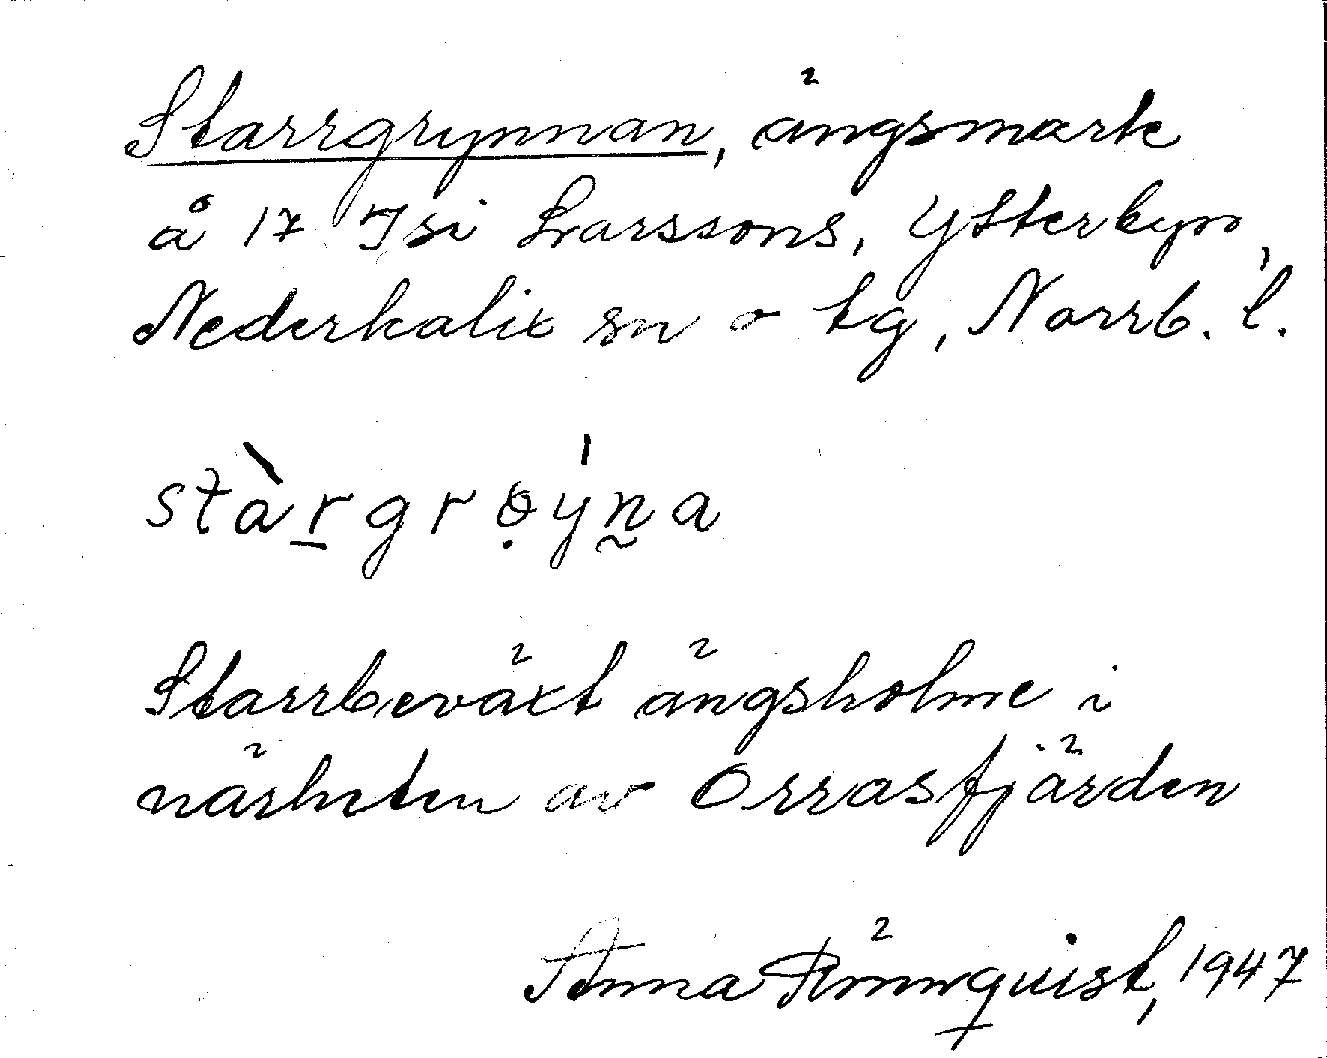 Starrgrynnan, ängsmark
å 17 Isi Larssons, Ytterbyn,
Nederkalix sn o tg, Norrb. l.
stàr̲grọ̈ýn̰a
Starrbeväxt ängsholme i
närheten av Orrasfjärden
Anna Rönnquist, 1947